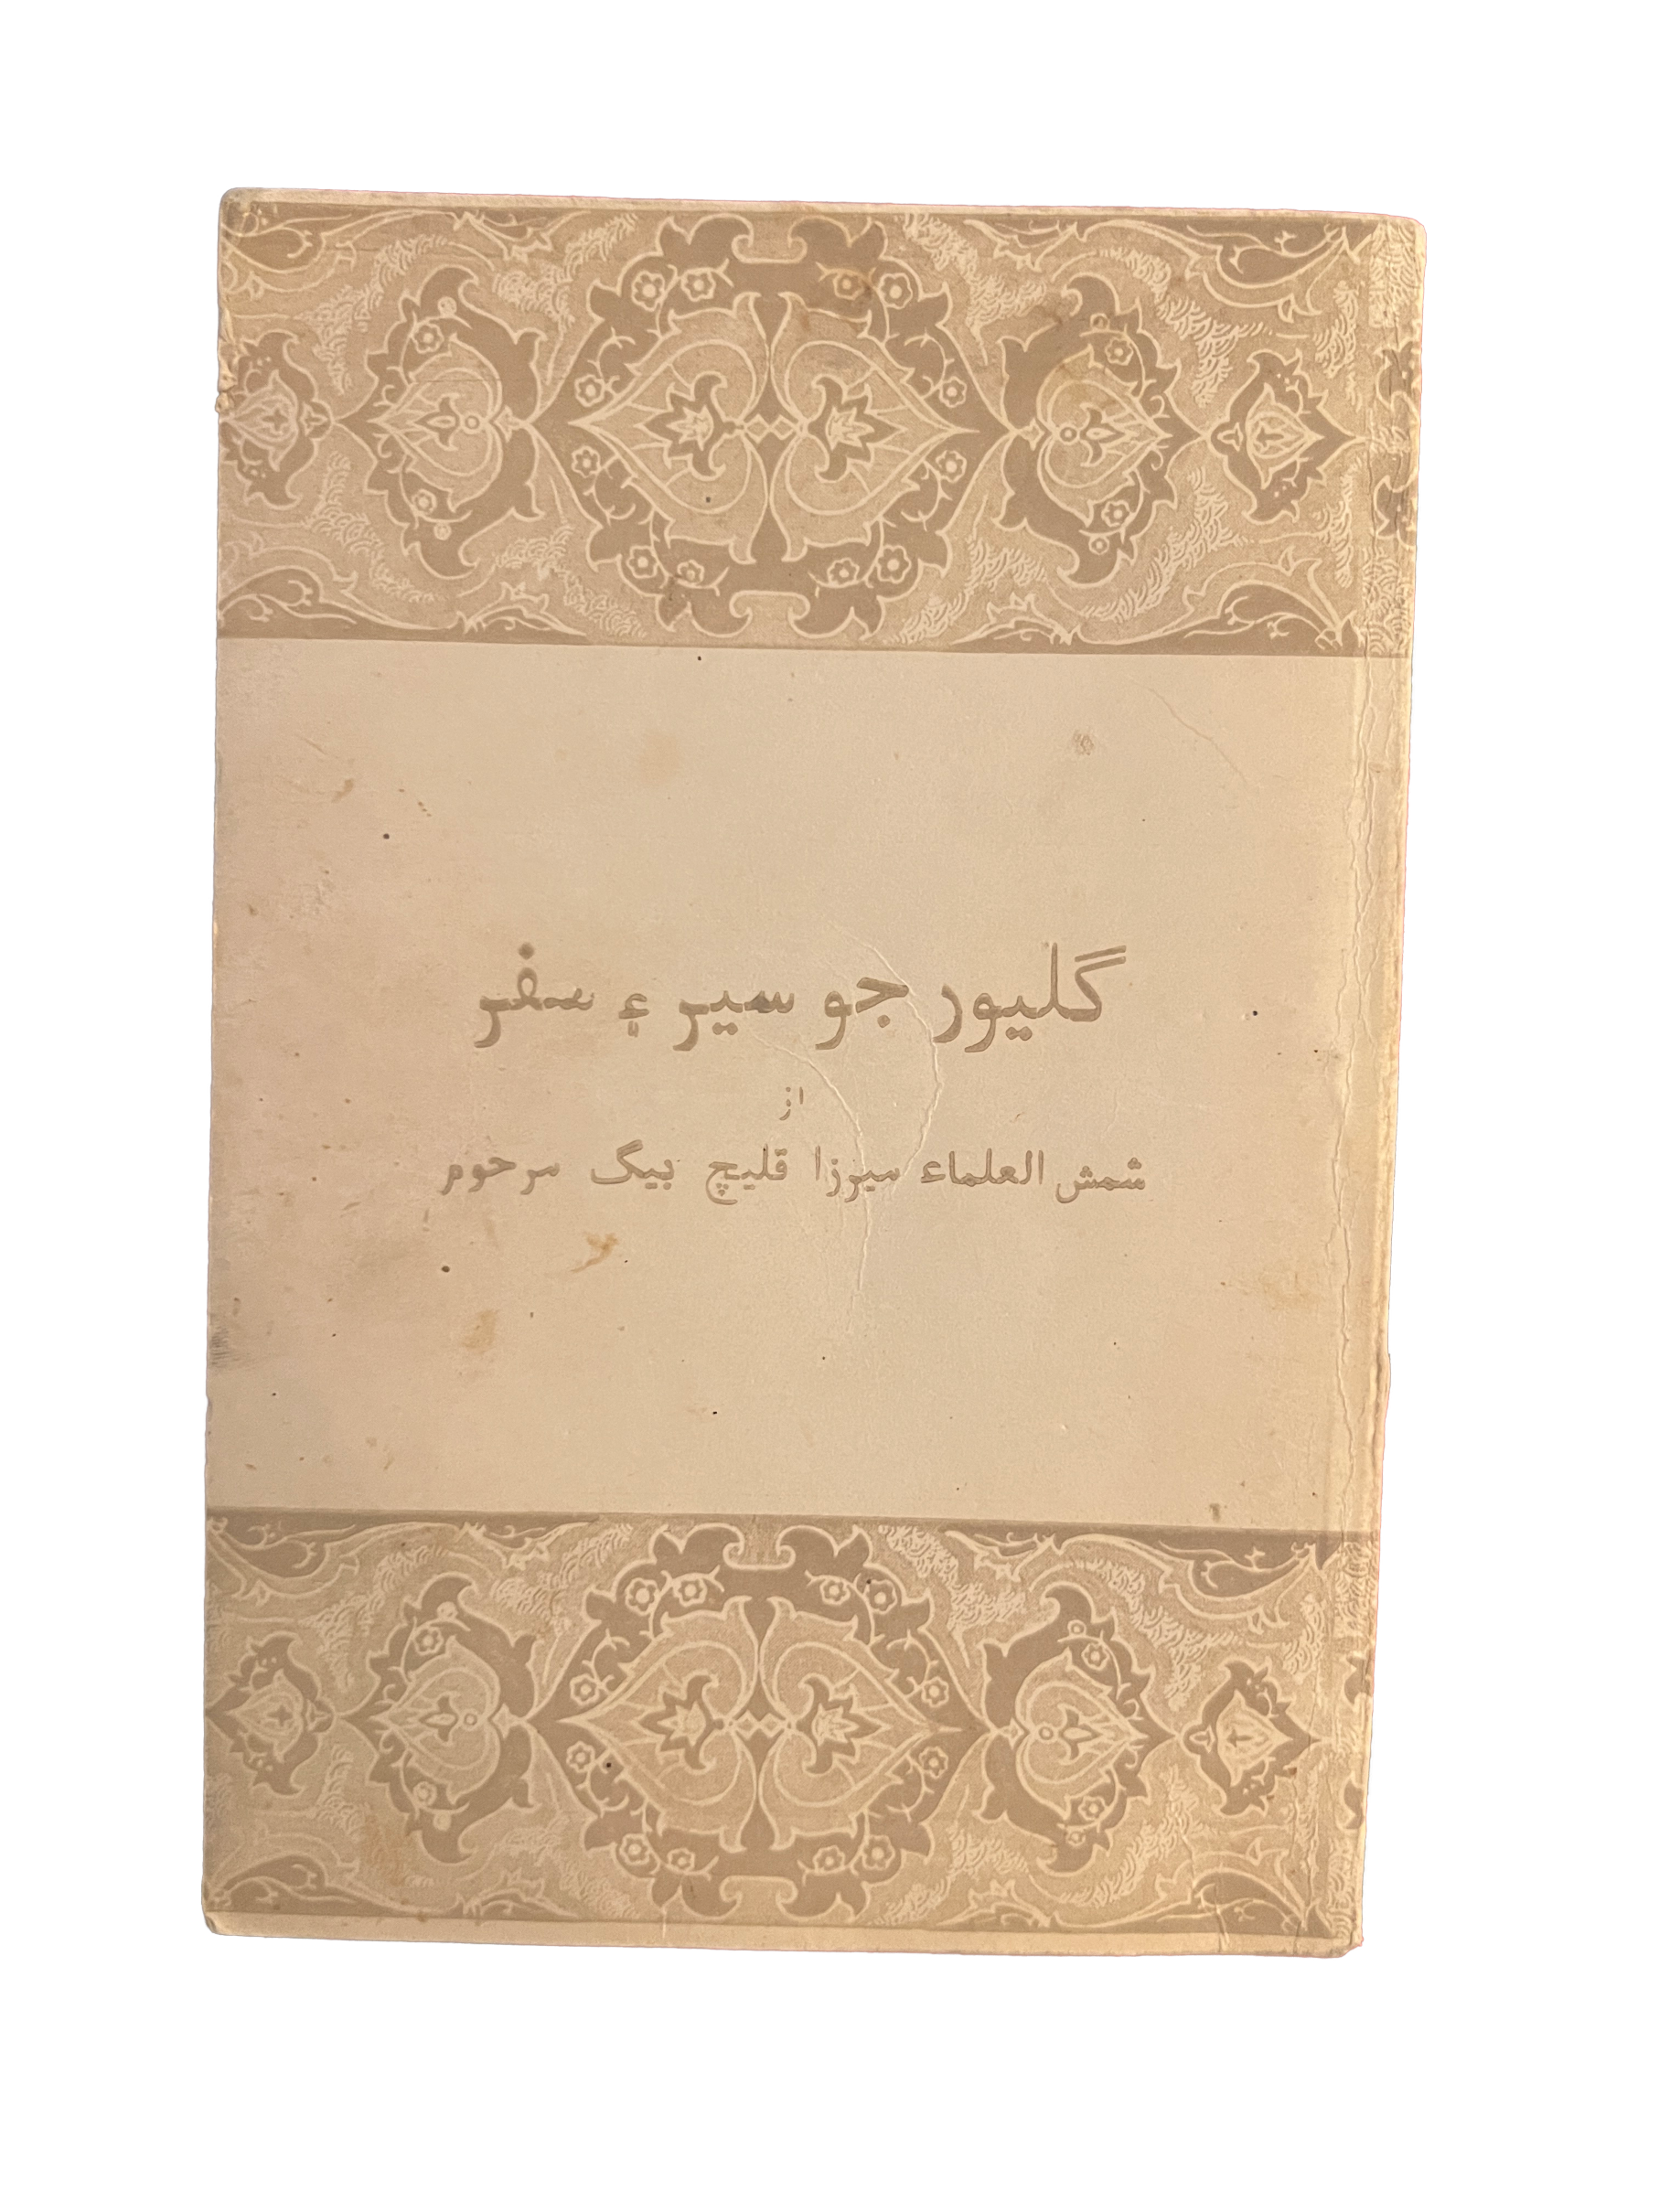 گليور جو سير ۽ سفر
از
شمش العلماء ميرزا قليچ بيگ مرحوم